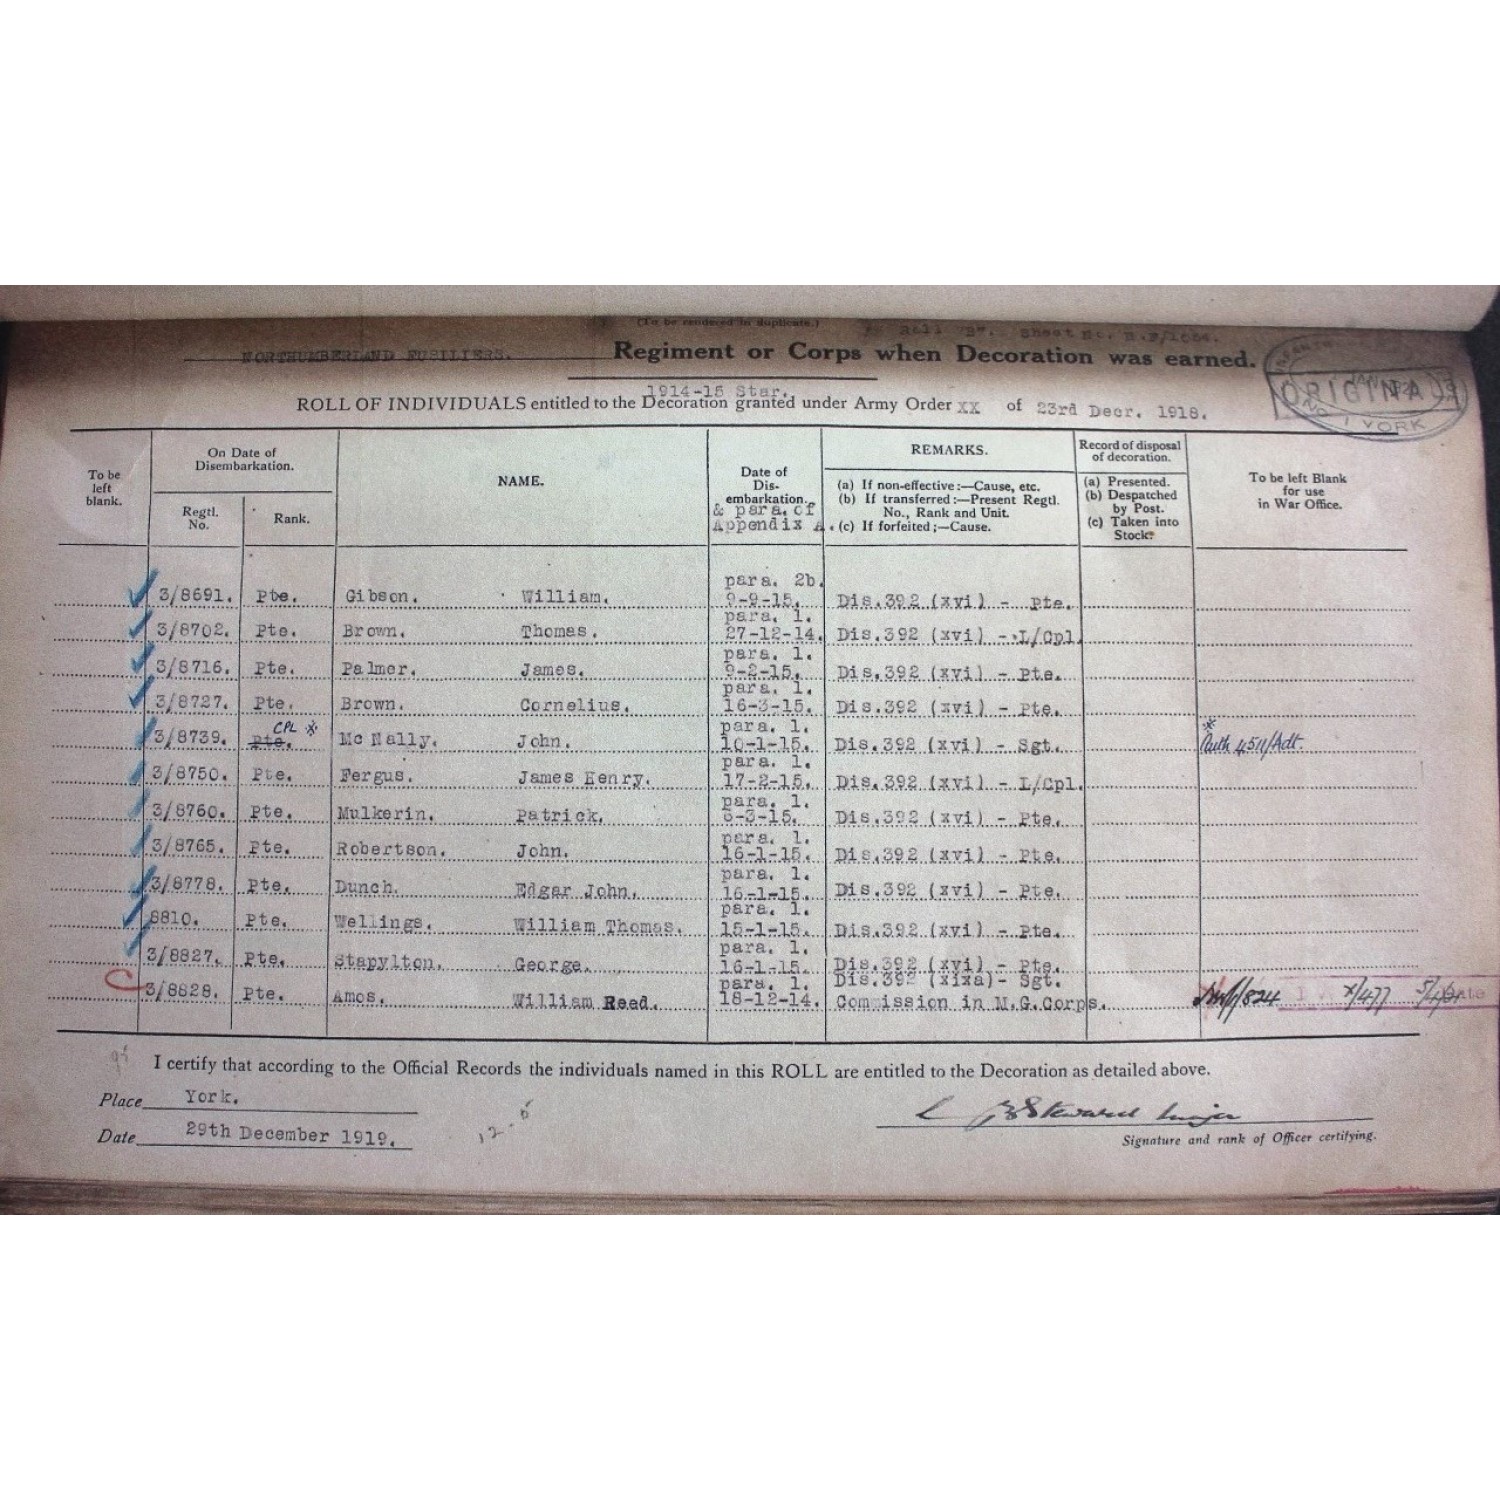 (To be rendered in duplicate.)
NORTHUMBERLAND FUSILIERS. Regiment or Corps when Decoration was earned.
ORIGINAL
1 YORK
1914-15 Star.
ROLL OF INDIVIDUALS entitled to the Decoration granted under Army Order XX of 23rd Decr. 1918.
To be left blank.
On Date of Disembarkation.
Regtl. No.
Rank.
NAME.
Date of Dis-embarkation. & para. of Appendix A.
REMARKS.
(a) If non-effective:—Cause, etc.
(b) If transferred:—Present Regtl. No., Rank and Unit.
(c) If forfeited;—Cause.
Record of disposal of decoration.
(a) Presented.
(b) Despatched by Post.
(c) Taken into Stock.
To be left Blank for use in War Office.
para. 2b.
3/8691. Pte. Gibson. William. 9-9-15. Dis.392 (xvi) - Pte.
para. 1.
3/8702. Pte. Brown. Thomas. 27-12-14. Dis.392 (xvi) - L/Cpl.
para. 1.
3/8716. Pte. Palmer. James. 9-2-15. Dis.392 (xvi) - Pte.
para. 1.
3/8727. Pte. Brown. Cornelius. 16-3-15. Dis.392 (xvi) - Pte.
CPL * para. 1. *
3/8739. Pte. Mc Nally. John. 10-1-15. Dis.392 (xvi) - Sgt. Auth 4511/Adt.
para. 1.
3/8750. Pte. Fergus. James Henry. 17-2-15. Dis.392 (xvi) - L/Cpl.
para. 1.
3/8760. Pte. Mulkerin. Patrick. Dis.392 (xvi) - Pte.
para. 1.
3/8765. Pte. Robertson. John. 16-1-15. Dis.392 (xvi) - Pte.
para. 1.
3/8778. Pte. Dunch. Edgar John. 16-1-15. Dis.392 (xvi) - Pte.
para. 1.
8810. Pte. Wellings. William Thomas. 15-1-15. Dis.392 (xvi) - Pte.
para. 1.
3/8827. Pte. Stapylton. George. 16-1-15. Dis.392 (xvi) - Pte.
para. 1. Dis.392 (xixa)- Sgt.
3/8828. Pte. Amos. William Reed. 18-12-14. Commission in M.G.Corps.
I certify that according to the Official Records the individuals named in this ROLL are entitled to the Decoration as detailed above.
Place York.
Date 29th December 1919.
Steward Major
Signature and rank of Officer certifying.